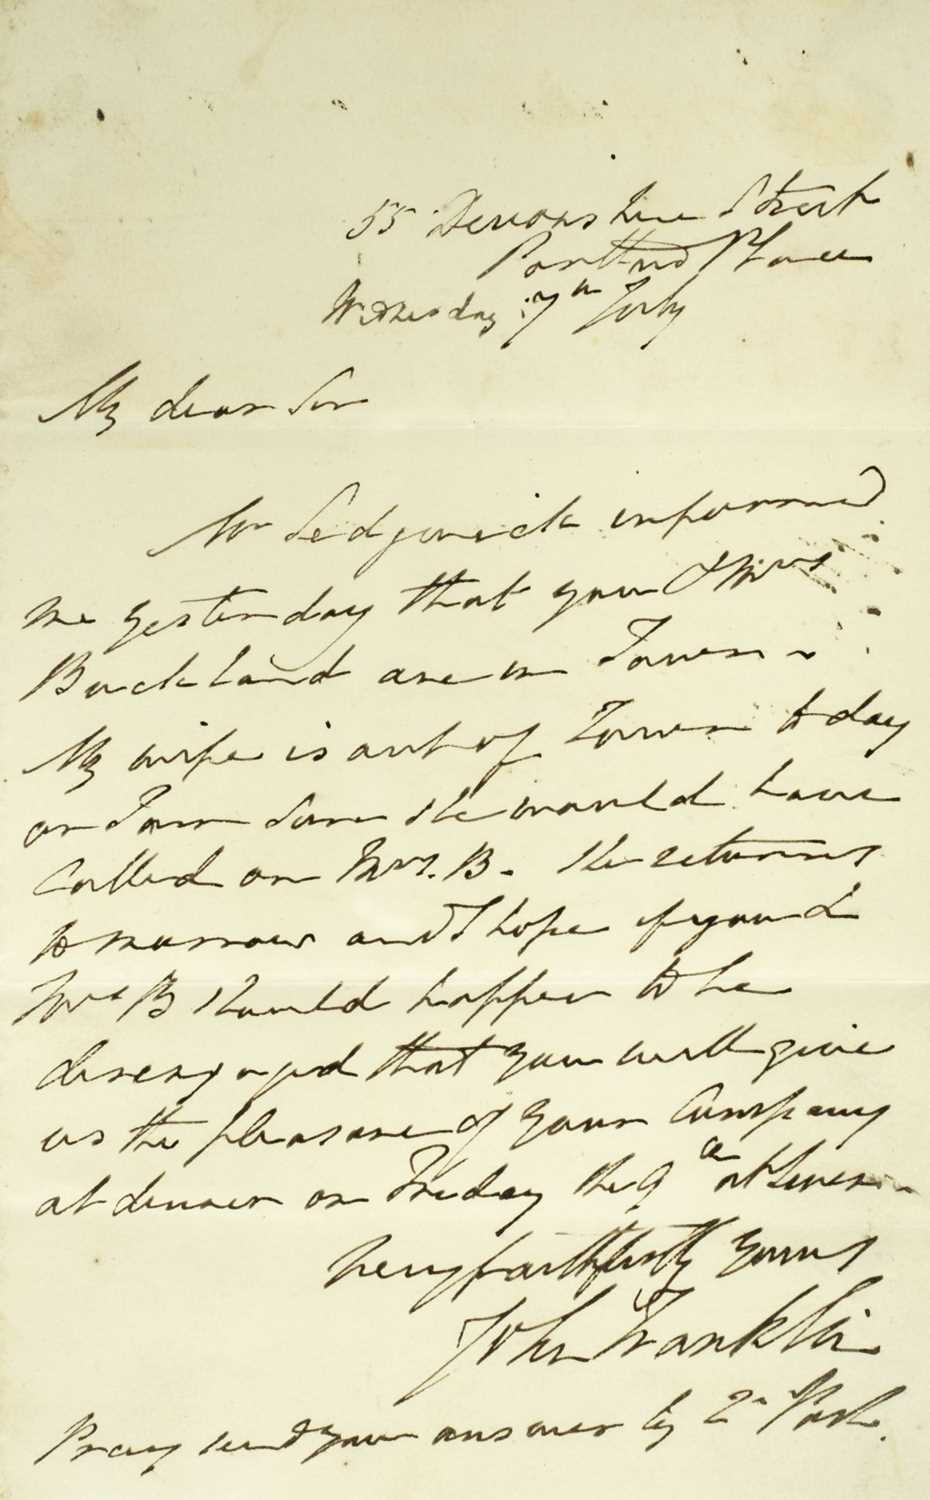 55 Devonshire Street
Portland Place
Wednesday 7th July
My dear Sir
Mr Sedgwick informed
me yesterday that you & Mrs
Buckland are in Town
My wife is out of Town to day
or I am sure she would have
called on Mrs. B. She returns
tomorrow and I hope if you &
Mrs B should happen to be
disengaged that you will give
us the pleasure of your Company
at dinner on Friday the 9th at Seven
Very faithfully Yours
John Franklin
Pray send your answer by 2d Post.